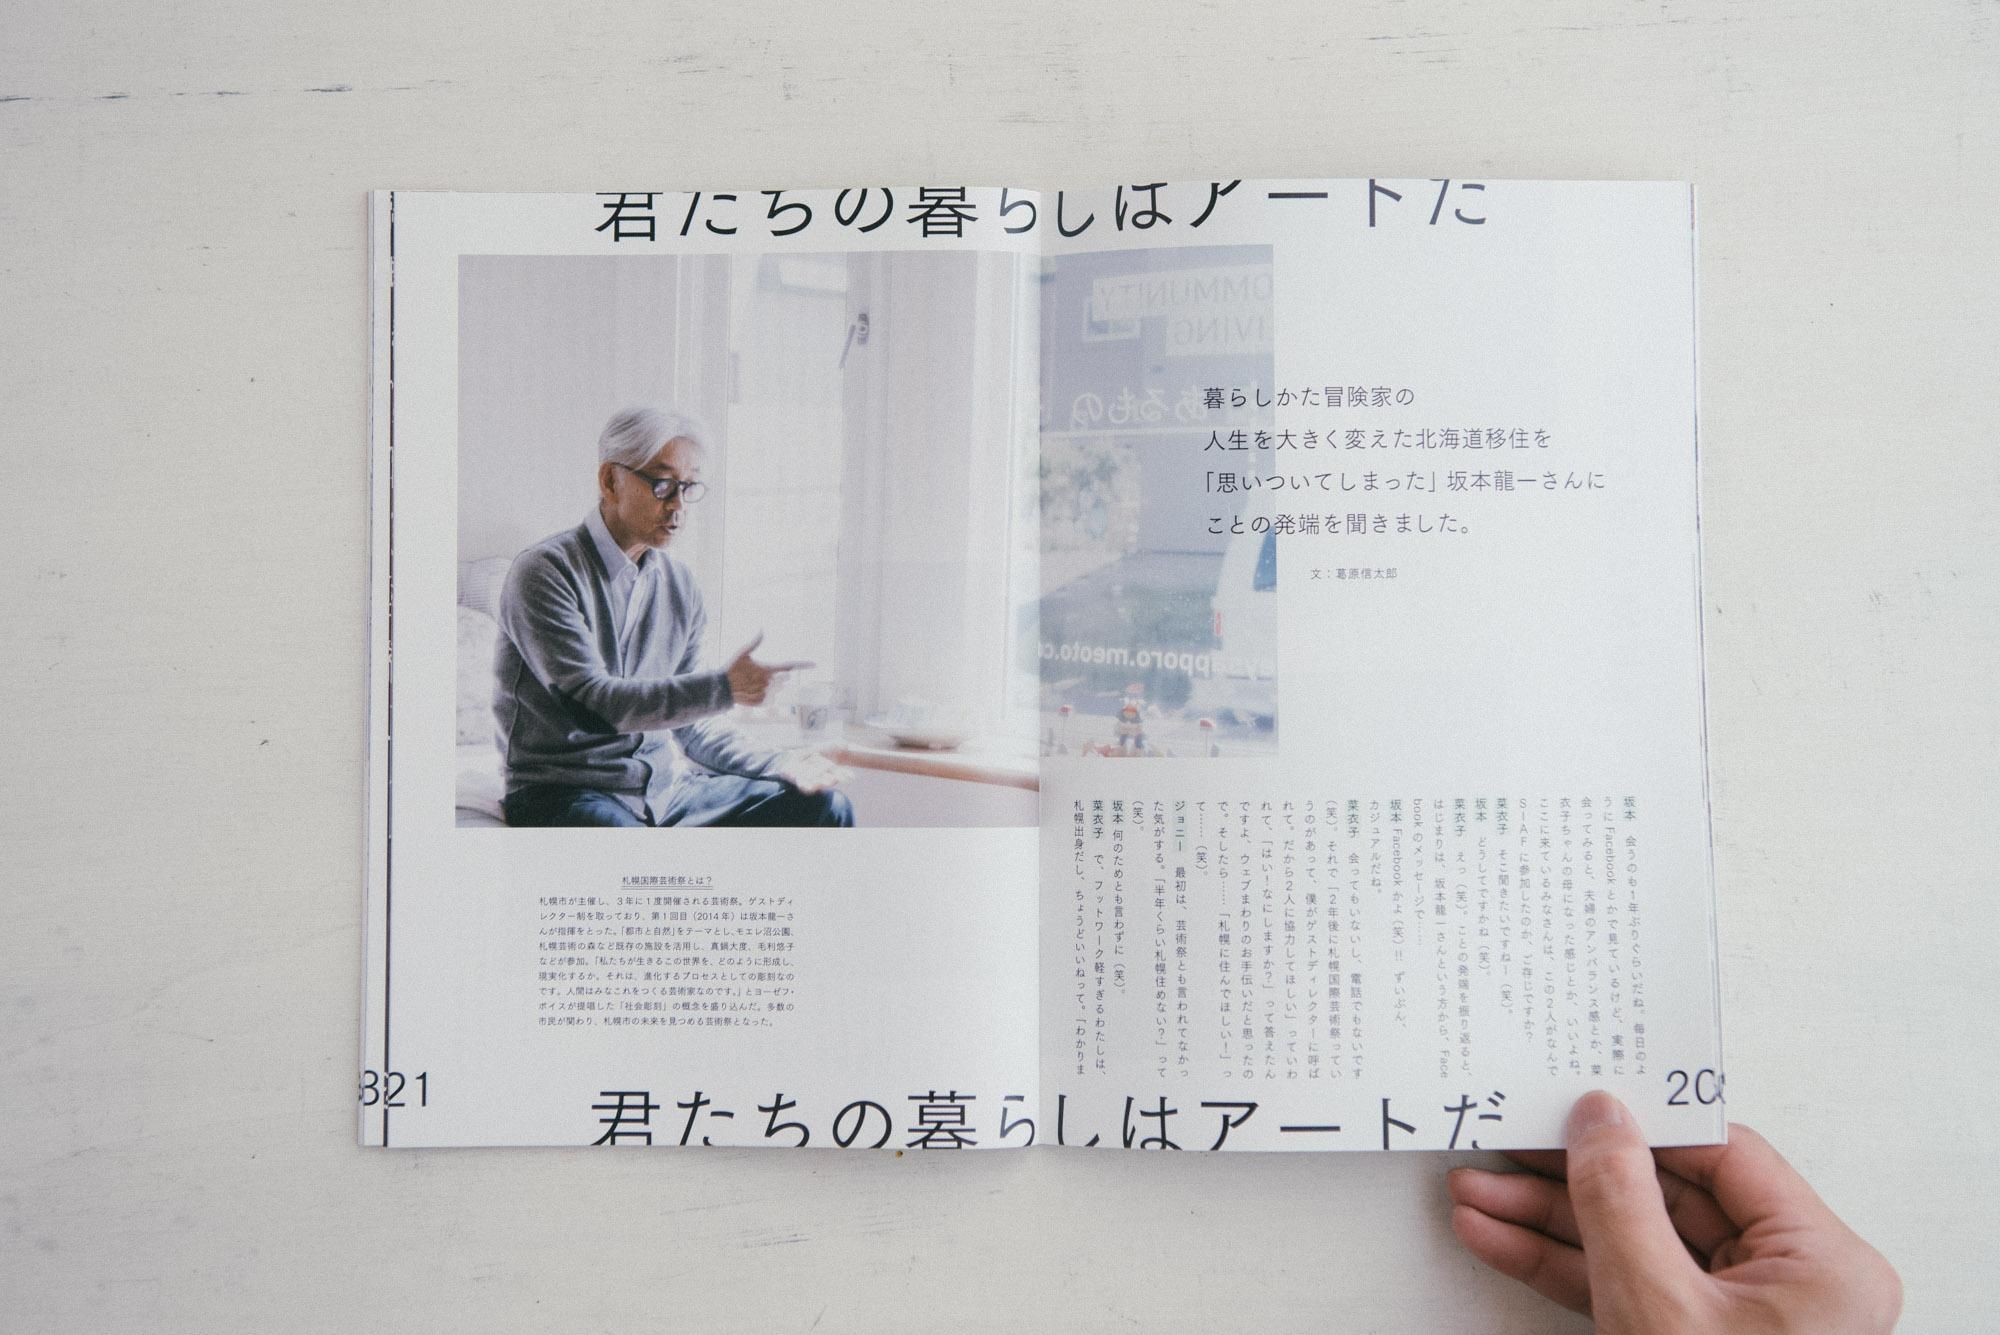 君たちの暮らしはアートだ
COMMUNITY
LIVING
あるもの
sapporo.meoto.co
暮らしかた冒険家の
人生を大きく変えた北海道移住を
「思いついてしまった」坂本龍一さんに
ことの発端を聞きました。
文：葛原信太郎
坂本　会うのも1年ぶりぐらいだね。毎日のよ
うにFacebookとかで見ているけど、実際に
会ってみると、夫婦のアンバランス感とか、菜
衣子ちゃんの母になった感じとか、いいよね。
ここに来ているみなさんは、この2人がなんで
SIAFに参加したのか、ご存じですか？
菜衣子　そこ聞きたいですねー（笑）。
坂本　どうしてですかね（笑）。
菜衣子　えっ（笑）。ことの発端を振り返ると、
はじまりは、坂本龍一さんという方から、Face
bookのメッセージで……
坂本　Facebookかよ（笑）!!　ずいぶん、
カジュアルだね。
菜衣子　会ってもいないし、電話でもないです
（笑）。それで「2年後に札幌国際芸術祭ってい
うのがあって、僕がゲストディレクターに呼ば
れて。だから2人に協力してほしい」っていわ
れて、「はい！なにしますか？」って答えたん
ですよ、ウェブまわりのお手伝いだと思ったの
で。そしたら……「札幌に住んでほしい！」っ
て……（笑）。
ジョニー　最初は、芸術祭とも言われてなかっ
た気がする。「半年くらい札幌住めない？」って
（笑）。
坂本　何のためとも言わずに（笑）。
菜衣子　で、フットワーク軽すぎるわたしは、
札幌出身だし、ちょうどいいねって。「わかりま
札幌国際芸術祭とは？
札幌市が主催し、3年に1度開催される芸術祭。ゲストディ
レクター制を取っており、第1回目（2014年）は坂本龍一さ
んが指揮をとった。「都市と自然」をテーマとし、モエレ沼公園、
札幌芸術の森など既存の施設を活用し、真鍋大度、毛利悠子
などが参加。「私たちが生きるこの世界を、どのように形成し、
現実化するか。それは、進化するプロセスとしての彫刻なの
です。人間はみなこれをつくる芸術家なのです。」とヨーゼフ・
ボイスが提唱した「社会彫刻」の概念を盛り込んだ。多数の
市民が関わり、札幌市の未来を見つめる芸術祭となった。
21
20
君たちの暮らしはアートだ